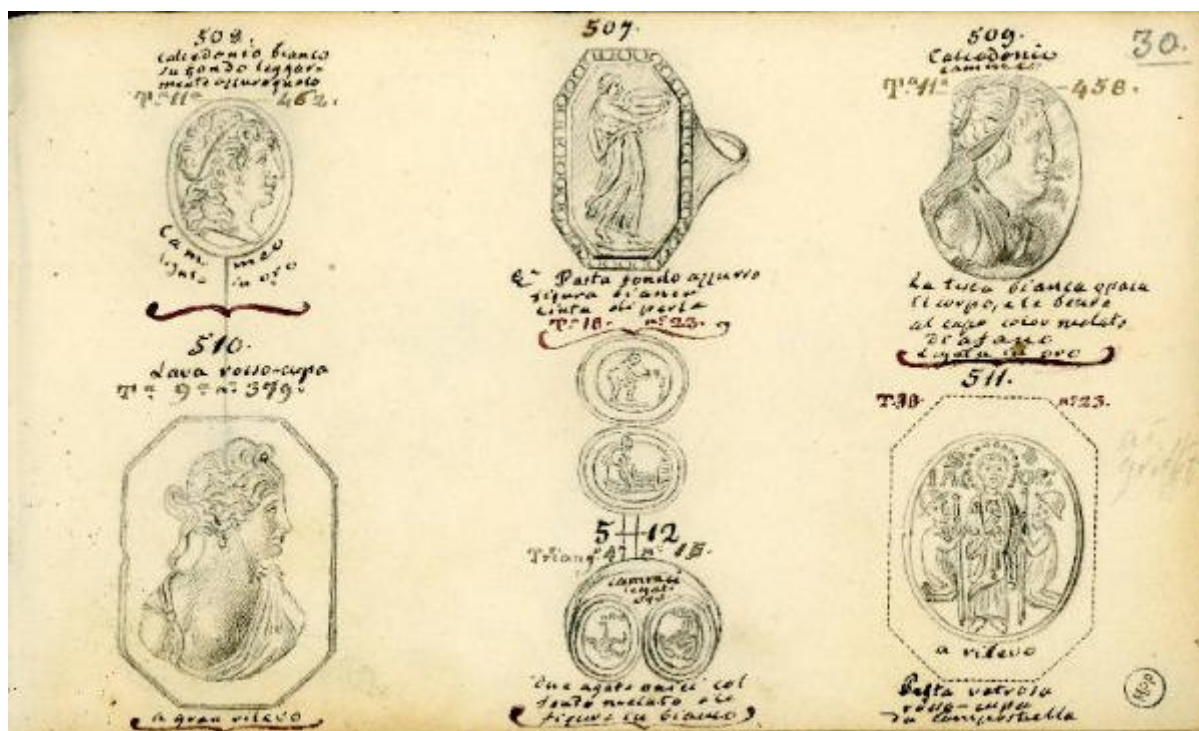 508.
calcedonio bianco
su fondo leggier-
mente azzurrognolo
T.ª 11ª 462.
Cammeo
legato in oro
510.
Lava rosso-cupa
Tª 9ª nº 379.
a gran rilievo
507.
Pasta fondo azzurro
figura bianca
cinta di perle
T.ª 18. nº 23.
512
Triang. nº 15.
cammei
legati
Due agate onici col
fondo melato e le
figure in bianco
509.
Calcedonio
cammeo
T.ª 11ª 458.
30.
La testa bianca opaca
il corpo, e le bende
al capo color melato
Diafano
Legata in oro
511.
T.18. nº 23.
a rilevo
Pasta vetrosa
rosso-cupa
da Compostella